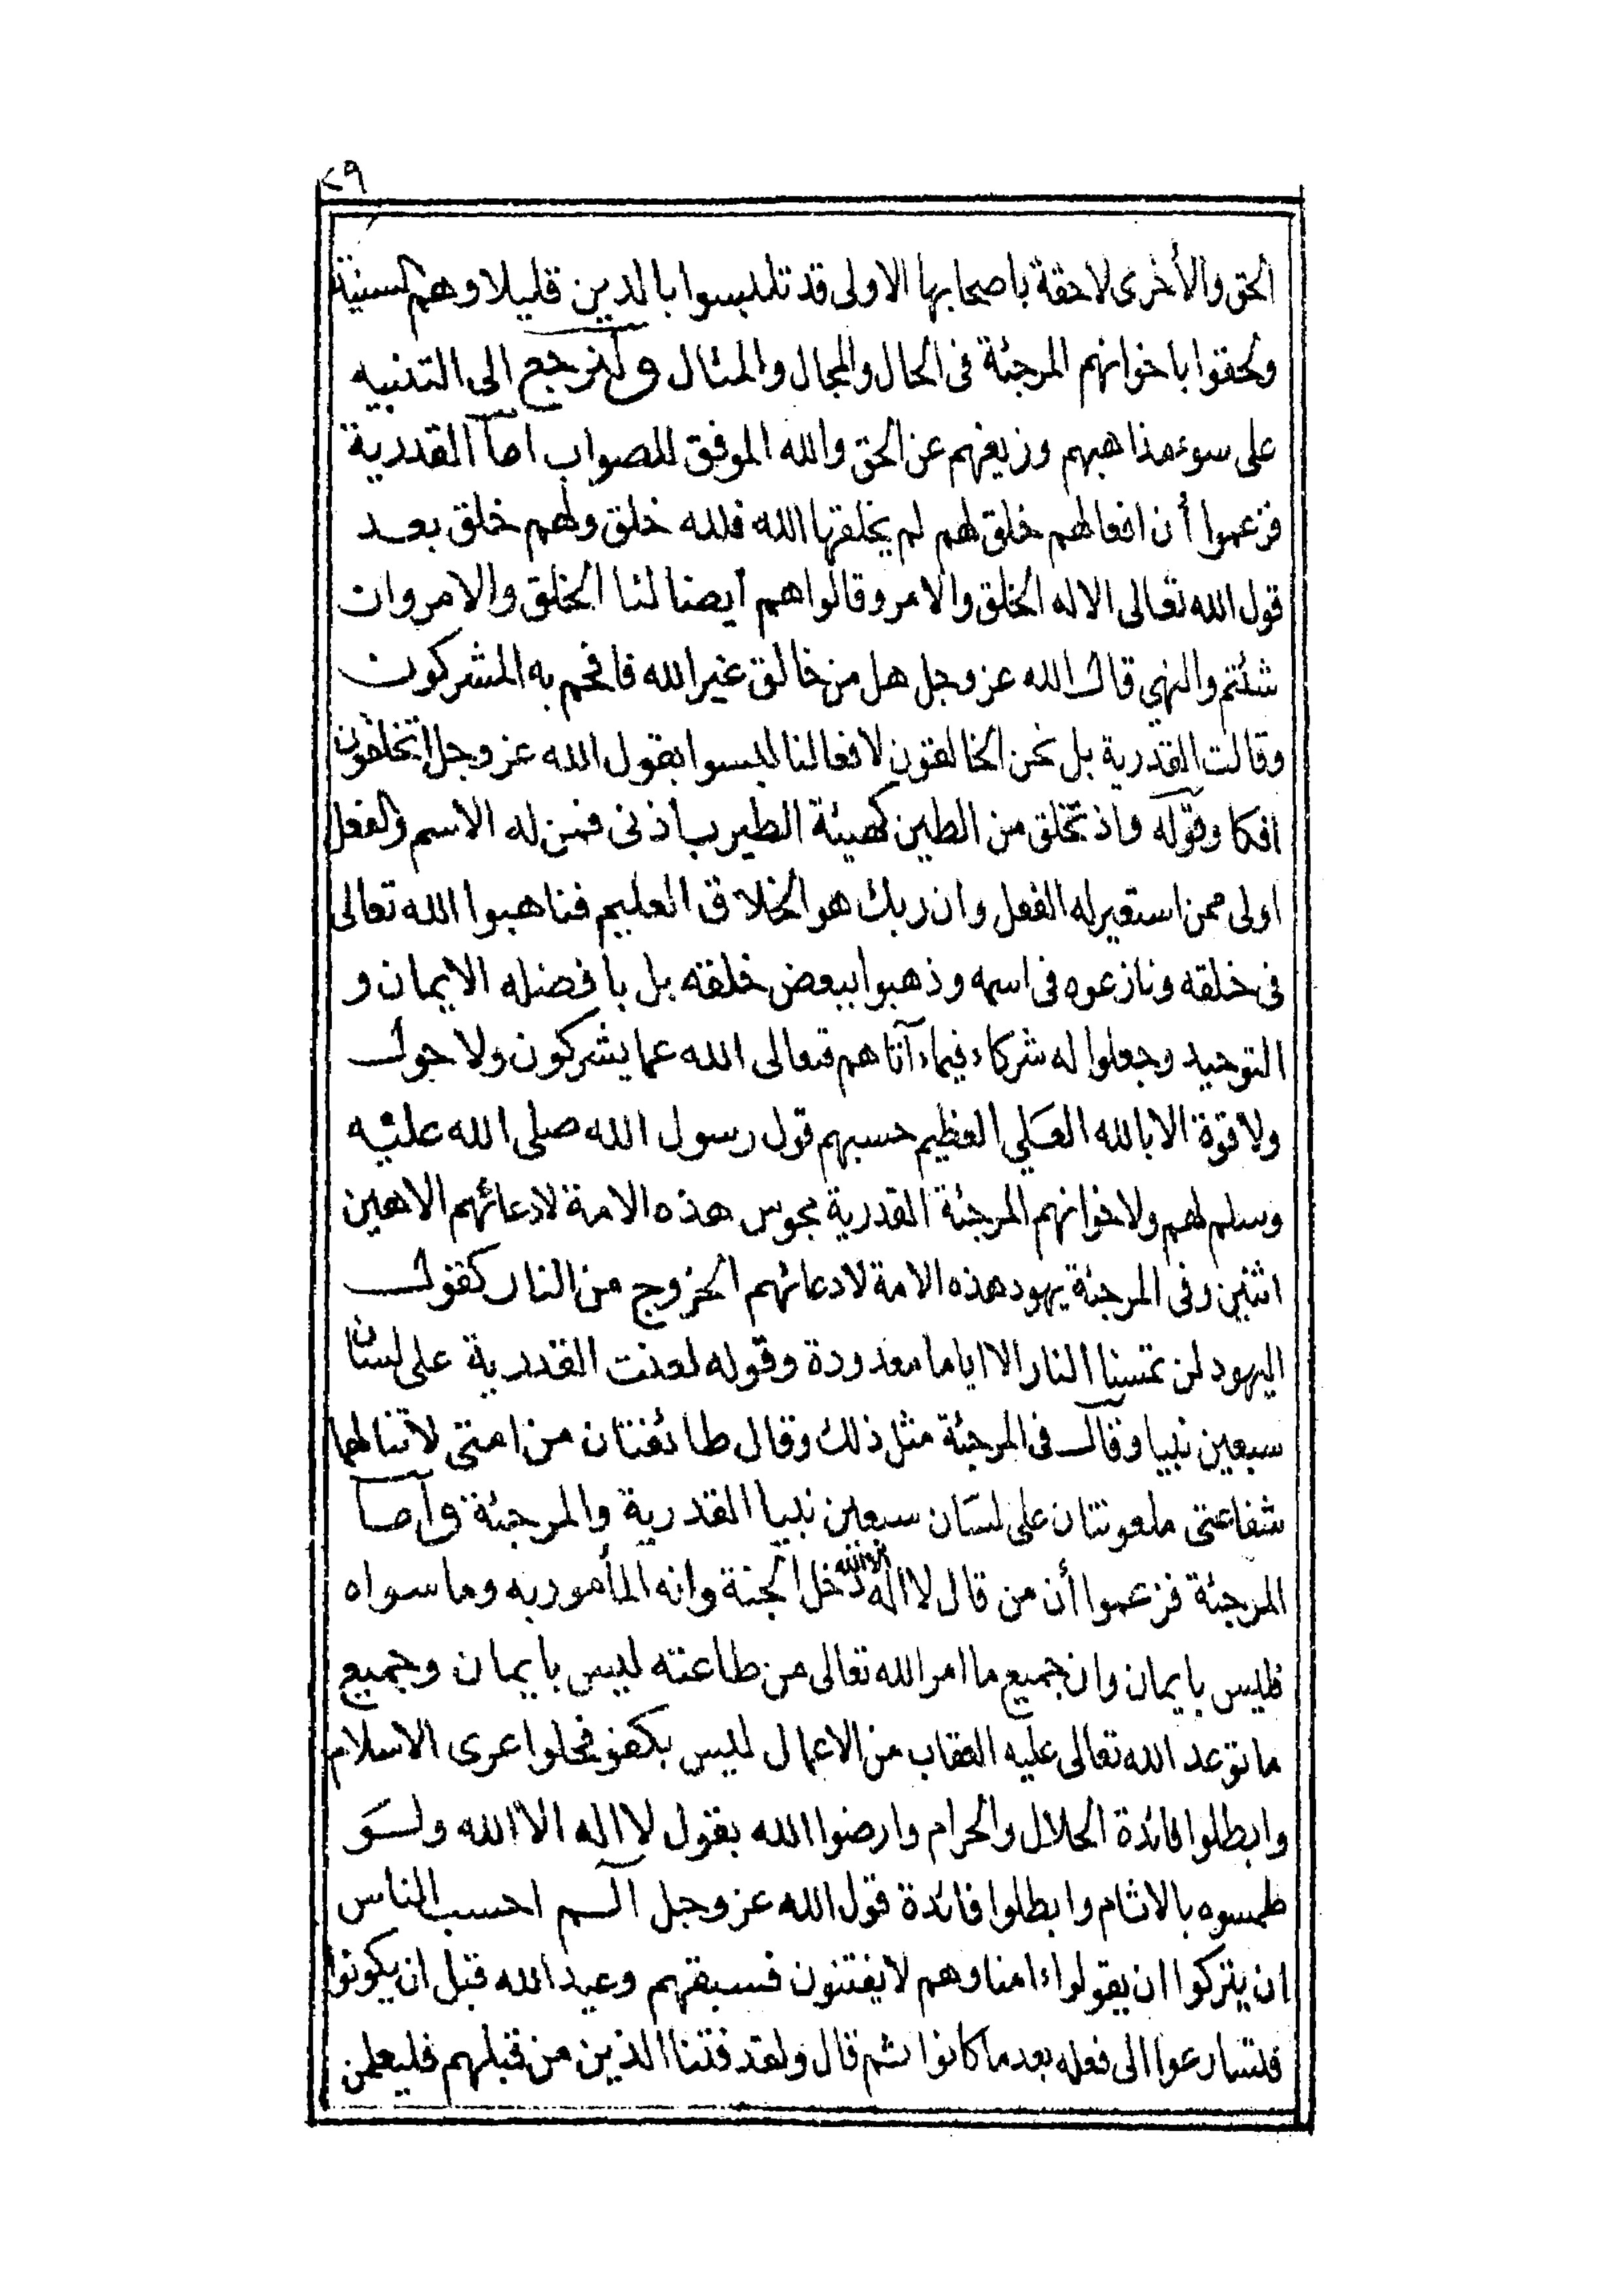 ٢٩
الحق والأخرى لاحقة باصحابها الاولى قد تلبسوا بالدين قليلا وهم السنية
ولحقوا باخوانهم المرجئة فى الحال والمجال والمثال ولنرجع الى التنبيه
على سوء مذاهبهم وزيغهم عن الحق والله الموفق للصواب اما القدرية
فزعموا أن افعالهم خلق لهم لم يخلقها الله فلله خلق ولهم خلق بعد
قول الله تعالى الا له الخلق والامر وقالوا هم ايضا لنا الخلق والامر وان
شئتم والنهي قال الله عز وجل هل من خالق غير الله فافحم به المشركون
وقالت القدرية بل نحن الخالقون لافعالنا لبسوا بقول الله عز وجل اتخلقون
افكا وقوله واذ تخلق من الطين كهيئة الطير باذنى فمن له الاسم والفعل
اولى ممن استعير له الفعل وان ربك هو الخلاق العليم فناهبوا الله تعالى
فى خلقه ونازعوه فى اسمه وذهبوا ببعض خلقه بل بافضله الايمان و
التوحيد وجعلوا له شركاء فيماء آتاهم فتعالى الله عما يشركون ولا حول
ولا قوة الا بالله العلي العظيم حسبهم قول رسول الله صلى الله عليه
وسلم لهم ولاخوانهم المرجئة القدرية مجوس هذه الامة لادعائهم الاهين
اثنين وفى المرجئة يهود هذه الامة لادعائهم الخروج من النار كقول
اليهود لن تمسنا النار الا اياما معدودة وقوله لعنت القدرية على لسان
سبعين نبيا وقال فى المرجئة مثل ذلك وقال طائفتان من امتى لا تنالهما
شفاعتى ملعونتان على لسان سبعين نبيا القدرية والمرجئة واما
المرجئة فزعموا أن من قال لا اله الا الله دخل الجنة وانه المأمور به وما سواه
فليس بايمان وان جميع ما امر الله تعالى من طاعته ليس بايمان وجميع
ما توعد الله تعالى عليه العقاب من الاعمال ليس بكفر فحلوا عرى الاسلام
وابطلوا فائدة الحلال والحرام وارضوا الله بقول لا اله الا الله ولو
طمسوه بالاثام وابطلوا فائدة قول الله عز وجل الم احسب الناس
ان يتركوا ان يقولواءامنا وهم لا يفتنون فسبقهم وعيد الله قبل ان يكونوا
فتسارعوا الى فعله بعد ما كانوا ثم قال ولقد فتنا الذين من قبلهم فليعلمن